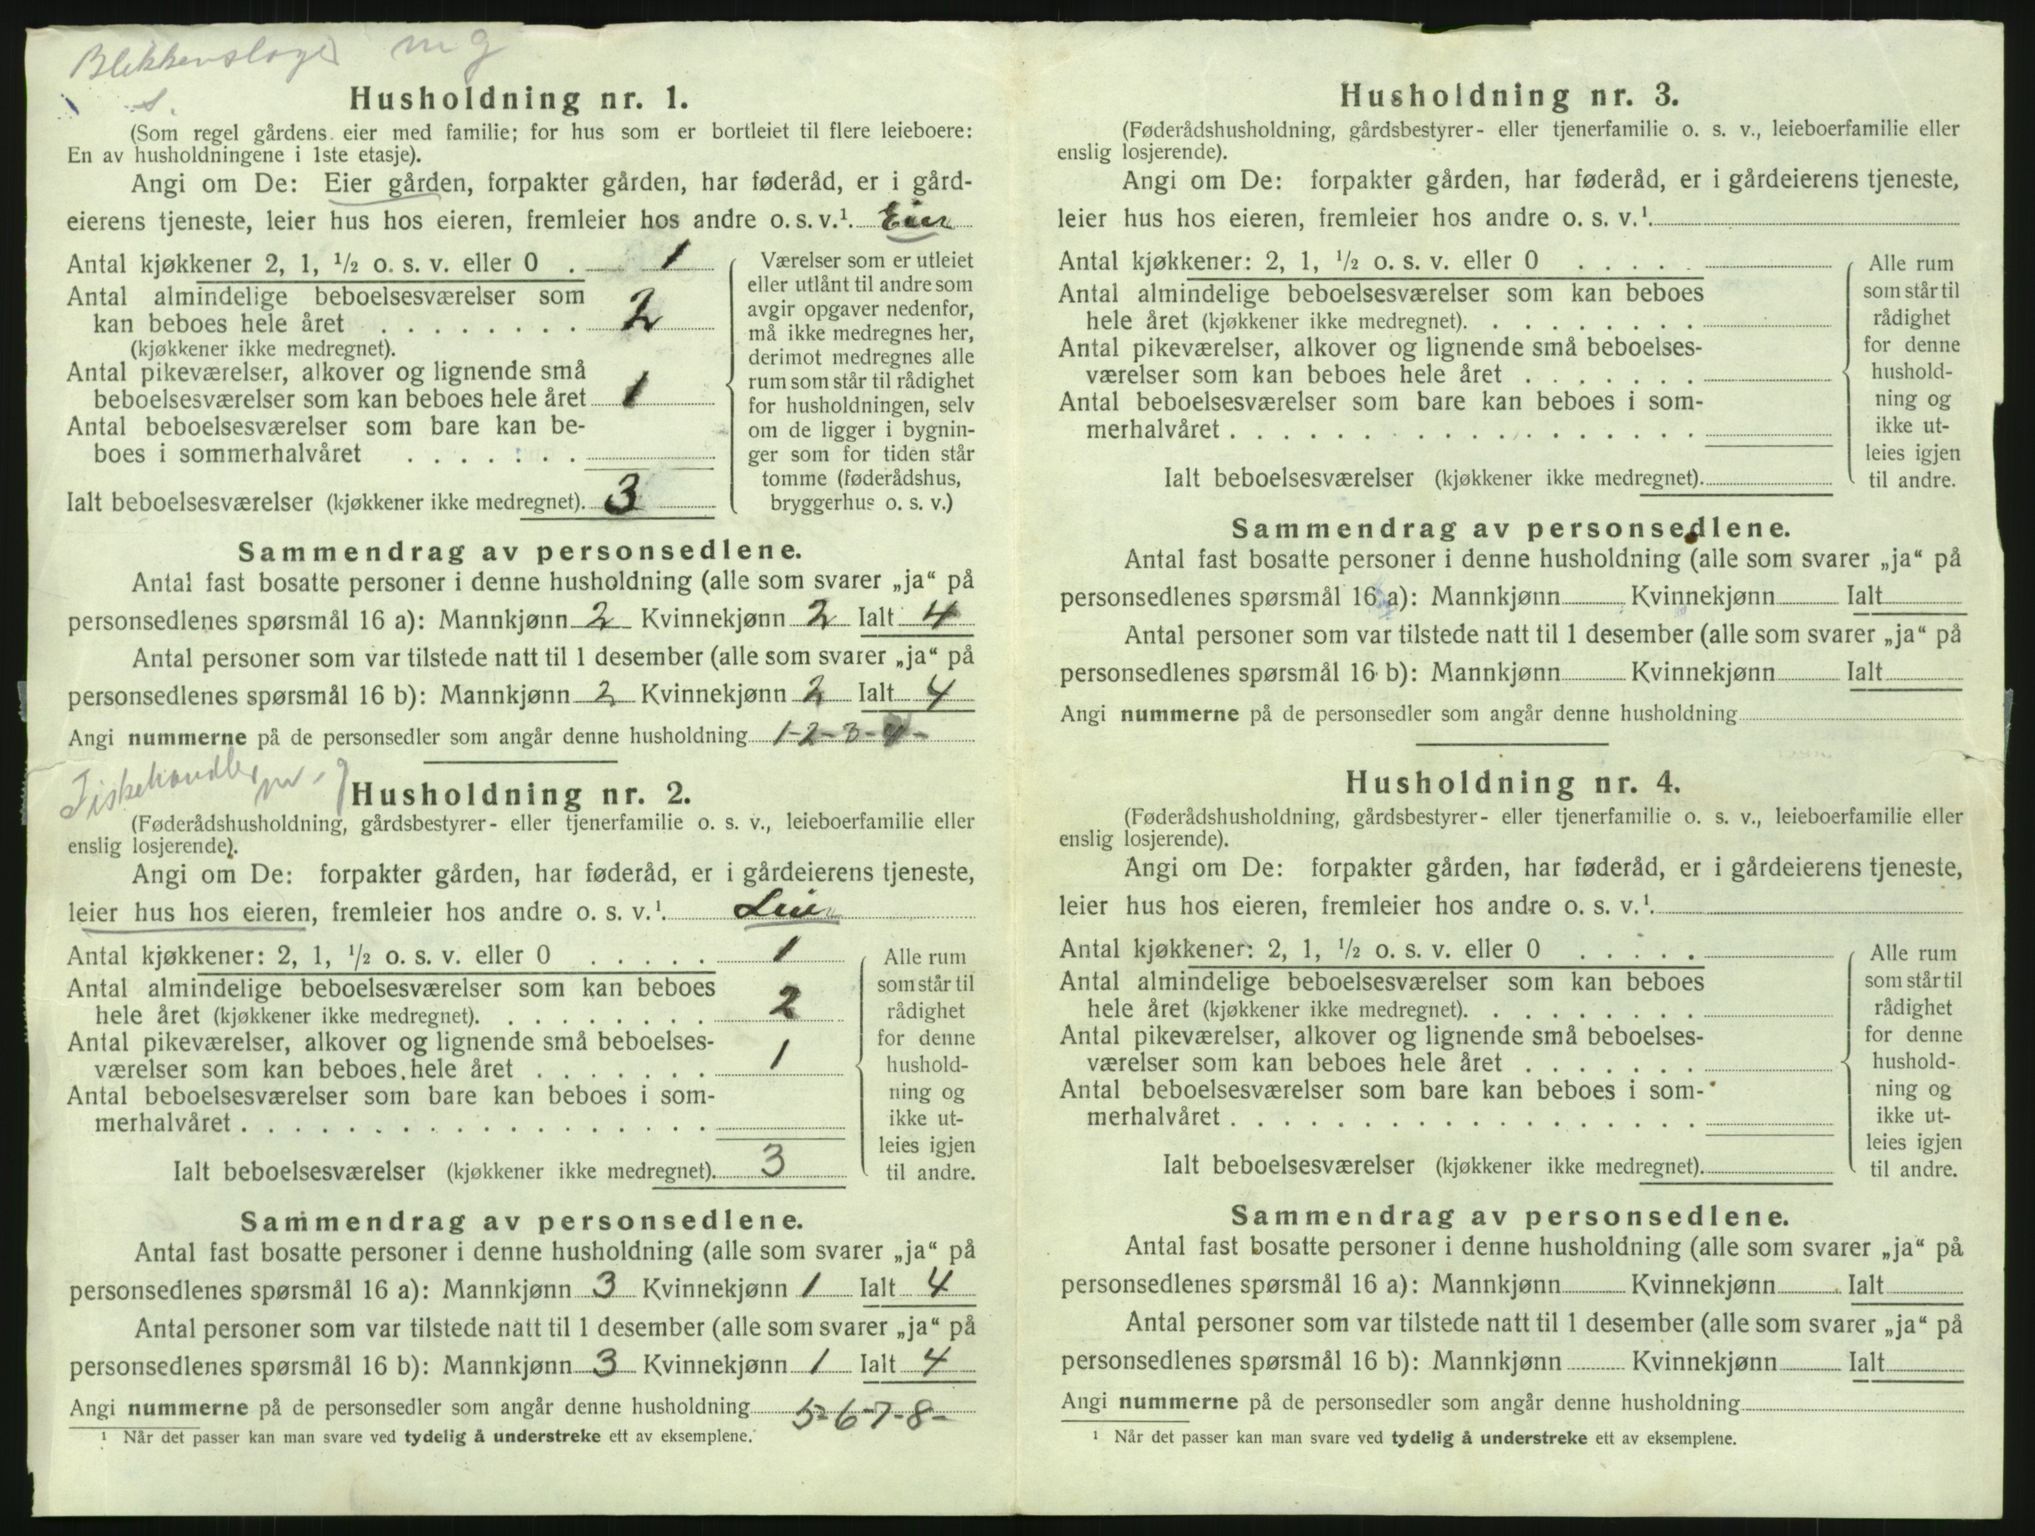 Blikkenslager m g
s.
Husholdning nr. 1.
(Som regel gårdens eier med familie; for hus som er bortleiet til flere leieboere:
En av husholdningene i 1ste etasje).
Angi om De: Eier gården, forpakter gården, har føderåd, er i gård-
eierens tjeneste, leier hus hos eieren, fremleier hos andre o. s. v.¹. Eier
Antal kjøkkener 2, 1, ½ o. s. v. eller 0 . 1
Antal almindelige beboelsesværelser som
kan beboes hele året . . . . . . . . 2
(kjøkkener ikke medregnet).
Antal pikeværelser, alkover og lignende små
beboelsesværelser som kan beboes hele året 1
Antal beboelsesværelser som bare kan be-
boes i sommerhalvåret . . . . . . .
Ialt beboelsesværelser (kjøkkener ikke medregnet). 3
Værelser som er utleiet
eller utlånt til andre som
avgir opgaver nedenfor,
må ikke medregnes her,
derimot medregnes alle
rum som står til rådighet
for husholdningen, selv
om de ligger i bygnin-
ger som for tiden står
tomme (føderådshus,
bryggerhus o. s. v.)
Sammendrag av personsedlene.
Antal fast bosatte personer i denne husholdning (alle som svarer „ja“ på
personsedlenes spørsmål 16 a): Mannkjønn 2 Kvinnekjønn 2 Ialt 4
Antal personer som var tilstede natt til 1 desember (alle som svarer „ja“ på
personsedlenes spørsmål 16 b): Mannkjønn 2 Kvinnekjønn 2 Ialt 4
Angi nummerne på de personsedler som angår denne husholdning 1-2-3-4-
Fiskehandler m. g
Husholdning nr. 2.
(Føderådshusholdning, gårdsbestyrer- eller tjenerfamilie o. s. v., leieboerfamilie eller
enslig losjerende).
Angi om De: forpakter gården, har føderåd, er i gårdeierens tjeneste,
leier hus hos eieren, fremleier hos andre o. s. v.¹. Leier
Antal kjøkkener: 2, 1, ½ o. s. v. eller 0 . . . . . 1
Antal almindelige beboelsesværelser som kan beboes
hele året (kjøkkener ikke medregnet). . . . . . . . . 2
Antal pikeværelser, alkover og lignende små beboelses-
værelser som kan beboes hele året . . . . . . . 1
Antal beboelsesværelser som bare kan beboes i som-
merhalvåret . . . . . . . . . . . . . . . . . .
Ialt beboelsesværelser (kjøkkener ikke medregnet). 3
Alle rum
som står til
rådighet
for denne
hushold-
ning og
ikke ut-
leies igjen
til andre.
Sammendrag av personsedlene.
Antal fast bosatte personer i denne husholdning (alle som svarer „ja“ på
personsedlenes spørsmål 16 a): Mannkjønn 3 Kvinnekjønn 1 Ialt 4
Antal personer som var tilstede natt til 1 desember (alle som svarer „ja“ på
personsedlenes spørsmål 16 b): Mannkjønn 3 Kvinnekjønn 1 Ialt 4
Angi nummerne på de personsedler som angår denne husholdning 5-6-7-8-
¹ Når det passer kan man svare ved tydelig å understreke ett av eksemplene.
Husholdning nr. 3.
(Føderådshusholdning, gårdsbestyrer- eller tjenerfamilie o. s. v., leieboerfamilie eller
enslig losjerende).
Angi om De: forpakter gården, har føderåd, er i gårdeierens tjeneste,
leier hus hos eieren, fremleier hos andre o. s. v.¹.
Antal kjøkkener: 2, 1, ½ o. s. v. eller 0 . . . . .
Antal almindelige beboelsesværelser som kan beboes
hele året (kjøkkener ikke medregnet). . . . . . . . .
Antal pikeværelser, alkover og lignende små beboelses-
værelser som kan beboes hele året . . . . . . .
Antal beboelsesværelser som bare kan beboes i som-
merhalvåret . . . . . . . . . . . . . . . . . .
Ialt beboelsesværelser (kjøkkener ikke medregnet).
Alle rum
som står til
rådighet
for denne
hushold-
ning og
ikke ut-
leies igjen
til andre.
Sammendrag av personsedlene.
Antal fast bosatte personer i denne husholdning (alle som svarer „ja“ på
personsedlenes spørsmål 16 a): Mannkjønn Kvinnekjønn Ialt
Antal personer som var tilstede natt til 1 desember (alle som svarer „ja“ på
personsedlenes spørsmål 16 b): Mannkjønn Kvinnekjønn Ialt
Angi nummerne på de personsedler som angår denne husholdning
Husholdning nr. 4.
(Føderådshusholdning, gårdsbestyrer- eller tjenerfamilie o. s. v., leieboerfamilie eller
enslig losjerende).
Angi om De: forpakter gården, har føderåd, er i gårdeierens tjeneste,
leier hus hos eieren, fremleier hos andre o. s. v.¹.
Antal kjøkkener: 2, 1, ½ o. s. v. eller 0 . . . . .
Antal almindelige beboelsesværelser som kan beboes
hele året (kjøkkener ikke medregnet). . . . . . . . .
Antal pikeværelser, alkover og lignende små beboelses-
værelser som kan beboes hele året . . . . . . .
Antal beboelsesværelser som bare kan beboes i som-
merhalvåret . . . . . . . . . . . . . . . . . .
Ialt beboelsesværelser (kjøkkener ikke medregnet).
Alle rum
som står til
rådighet
for denne
hushold-
ning og
ikke ut-
leies igjen
til andre.
Sammendrag av personsedlene.
Antal fast bosatte personer i denne husholdning (alle som svarer „ja“ på
personsedlenes spørsmål 16 a): Mannkjønn Kvinnekjønn Ialt
Antal personer som var tilstede natt til 1 desember (alle som svarer „ja“ på
personsedlenes spørsmål 16 b): Mannkjønn Kvinnekjønn Ialt
Angi nummerne på de personsedler som angår denne husholdning
¹ Når det passer kan man svare ved tydelig å understreke ett av eksemplene.